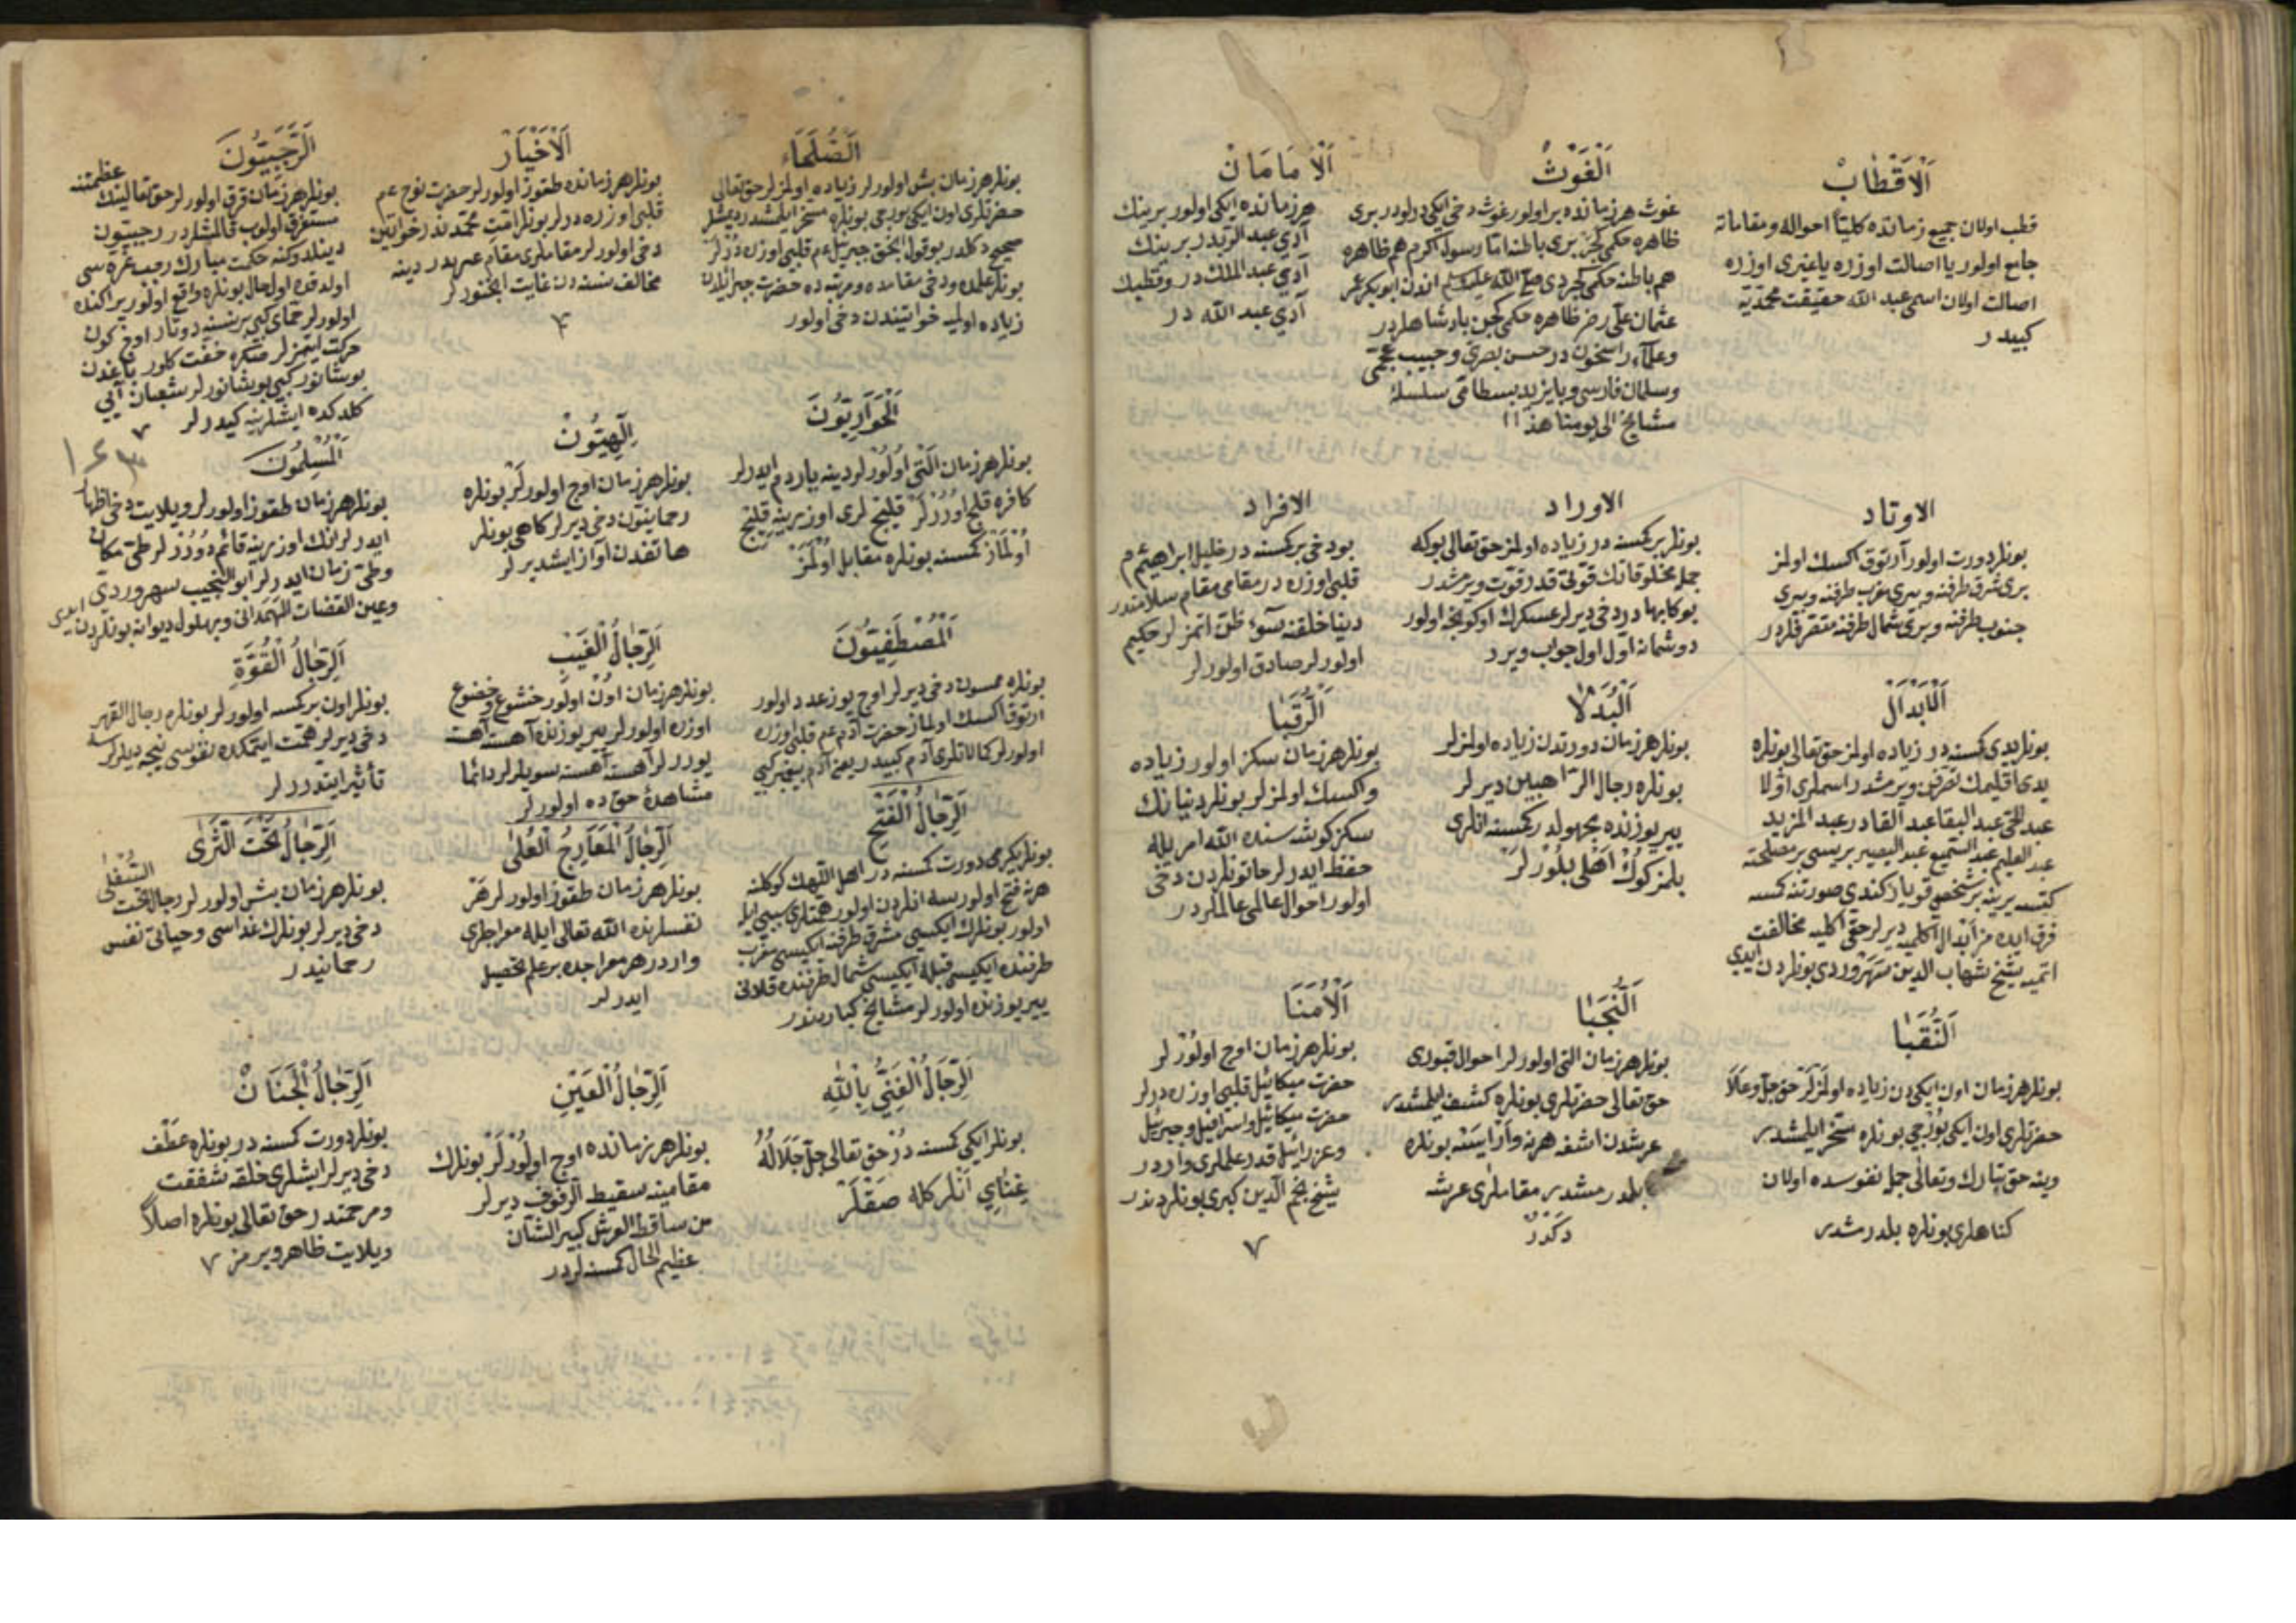 اَلْاَقْطَابْ
قطب اولان جميع زمانده كليتاً احواله ومقاماته
جامع اولور يا اصالت اوزره يا غيرى اوزره
اصالت اولان اسمى عبد الله حقيقت محمّديّه
كبيدر
اَلْغَوْثْ
غوث هر زمانده بر اولور غوث دخى ايكى دولودر برى
ظاهره حكمى كچر برى باطنه امّا رسول اكرم هم ظاهره
هم باطنه حكمى كچردى صلى الله عليه وسلم اندن ابوبكر عمر
عثمان على رضى ظاهره حكمى كچن پادشاهلردر
وعلماء راسخون در حسن بصرى وحبيب عجمى
وسلمان فارسى وبايزيد بسطامى سلسلهٔ
مشايخ الى يومنا هذا
اَلْاِمَامَانْ
هر زمانده ايكى اولور برينك
آدى عبد الرّبدر برينك
آدى عبد الملك در وقطبك
آدى عبد الله در
الاوتاد
بونلر دورت اولور آرتوق اكسك اولمز
برى شرق طرفنه وبرى مغرب طرفنه وبرى
جنوب طرفنه وبرى شمال طرفنه متقرقلردر
الاوراد
بونلر بر كمسنه در زياده اولمز حق تعالى بوكه
جمله مخلوقاتك قوّتى قدر قوّت ويرمشدر
بوكا بهادر دخى ديرلر عسكرك اوكونجه اولور
دوشمانه اوّل اول جواب ويرر
الافراد
بو دخى بر كمسنه در خليل ابراهيم عم
قلبى اوزره در مقامى مقام سلامتدر
دنيا خلقنه سوء ظن اتمز لر حكيم
اولورلر صادق اولورلر
اَلْاَبْدَالْ
بونلر يدى كمسنه در زياده اولمز حق تعالى بونلره
يدى اقليمك تصرّفن ويرمشدر اسملرى اوّلا
عبد الحى عبد البقا عبد القادر عبد المزيد
عبد العليم عبد السّميع عبد البصير بريسى بر مصلحته
كتسه يرينه بر شخص قويار كندى صورتنه كمسه
فرق ايده مز ابدال اكلميه ديرلر حقى اكليه مخالفت
اتميه شيخ شهاب الدين سهروردى بونلردن ايدى
اَلْبُدَلَا
بونلر هر زمان دورتدن زياده اولمزلر
بونلره رجال الرّاهبين ديرلر
يير يوزنده مجهولدر كمسنه انلرى
بلمز كوك اهلى بلورلر
اَلرُّقَبَا
بونلر هر زمان سكز اولور زياده
واكسك اولمزلر بونلر دنيانك
سكز كوشه سنده الله امريله
حفظ ايدرلر خاتونلردن دخى
اولور احوال عالمى عالملردر
اَلنُّقَبَا
بونلر هر زمان اون ايكيدن زياده اولمزلر حق جلّ وعلا
حضرتلرى اون ايكى بورجى بونلره مسخّر ايلمشدر
وينه حق تبارك وتعالى جمله نفوسده اولان
كناهلرى بونلره بلدرمشدر
اَلنُّجَبَا
بونلر هر زمان التى اولورلر احوال قبورى
حق تعالى حضرتلرى بونلره كشف ايلمشدر
عرشدن اشغه هر نه وار ايسه بونلره
بلدرمشدر مقاملرى عرشه
دكدر
اَلْاُمَنَا
بونلر هر زمان اوچ اولورلر
حضرت ميكائيل قلبى اوزره درلر
حضرت ميكائيل واسرافيل وجبرئيل
وعزرائيل قدر علملرى واردر
شيخ نجم الدين كبرى بونلردندر
اَلصُّلَحَاء
بونلر هر زمان بش اولورلر زياده اولمزلر حق تعالى
حضرتلرى اون ايكى بورجى بونلره مسخّر ايلمشدر ديمشلر
صحيح دكلدر بو قول الحق جبريل عم قلبى اوزره درلر
بونلر علمده ودخى مقامده ومرتبه ده حضرت جبرائلدن
زياده اولميه خواتيندن دخى اولور
اَلْاَخْيَارْ
بونلر هر زمانده طقوز اولورلر حضرت نوح عم
قلبى اوزره درلر بونلر امّت محمّد ندر خواتين
دخى اولورلر مقاملرى مقام عبرهدر دينه
مخالف نسنه دن غايت اينجنورلر
اَلرَّجَبِيُّونَ
بونلر هر زمان قرق اولورلر حق تعالينك عظمتنه
مستغرق اولوب قالمشلردر رجبيّون
دينلدوكنه حكمت مبارك رجب غرّه سى
اولدقده اول حال بونلره واقع اولور يراكنده
اولورلر حمّاى كبى بر نسنه دوتار اوچ كون
حركت ايتمزلر صكره خفت كلور باغدن
بوشانور كبى بوشانورلر شعبان آيى
كلدكده ايشلرينه كيدرلر
اَلْحَوَارِيُّونَ
بونلر هر زمان التى اولورلر دينه ياردم ايدرلر
كافره قلج اوررلر قليج لرى اوزرينه قليج
اولماز كمسنه بونلره مقابل اولمز
اِلٰهِيُّونْ
بونلر هر زمان اوچ اولورلر بونلره
رحمانيّون دخى ديرلر كاهى بونلر
هاتفدن آواز ايشديرلر
اَلْمُسْلِمُونَ
بونلر هر زمان طقوز اولورلر ويلايت دخى اظهار
ايدرلر انك اوزرينه قائم دورزلر طىّ مكان
وطىّ زمان ايدرلر ابو النجيب سهروردى
وعين القضات الهمدانى وبهلول ديوانه بونلردن ايدى
اَلْمُصْطَفِيُّونَ
بونلره ممسون دخى ديرلر اوچ يوز عدد اولور
ارتوق اكسك اولماز حضرت آدم عم قلبى اوزره
اولورلر كمالاتلرى آدم كبيدر يعنى آدم پيغمبر كبى
اَلرِّجَالُ الْغَيْبِ
بونلر هر زمان اون اولور خشوع وخضوع
اوزره اولورلر يير يوزنده آهسته آهسته
يوررلر آهسته آهسته سويلرلر دائما
مشاهدهٔ حق ده اولورلر
اَلرِّجَالُ الْقُوَّةِ
بونلر اون بر كمسه اولورلر بونلره رجال القهر
دخى ديرلر همّت ايتمكده نفوسى نيجه ديلرلرسه
تأثير ايتدررلر
اَلرِّجَالُ الْفَتْحِ
بونلر يكرمى دورت كمسنه در اهل اللّهك كوكلنه
هر نه فتح اولورسه انلردن اولور همّتلرى سببى ايله
اولور بونلرك ايكيسى مشرق طرفنه ايكيسى مغرب
طرفنده ايكيسى قبله ايكيسى شمال طرفنده قلانى
يير يوزنده اولورلر مشايخ كباردندر
اَلرِّجَالُ الْمَعَارِجُ الْعُلٰى
بونلر هر زمان طقوز اولورلر هر
نفسلرنده الله تعالى ايله معراجلرى
واردر هر معراجده بر علم تحصيل
ايدرلر
اَلرِّجَالُ تَحْتَ الثَّرٰى
بونلر هر زمان بش اولورلر رجال تحت السّفلى
دخى ديرلر بونلرك غداسى وحياتى نفس
رحمانيدر
اَلرِّجَالُ الْغَنِىُّ بِاللّٰهِ
بونلر ايكى كمسنه در حق تعالى جلّ جلاله
غناىِ انلر كله صقلر
اَلرِّجَالُ الْعَيْنِ
بونلر هر زمانده اوچ اولورلر بونلرك
مقامينه سقيط الرّفرف ديرلر
من ساقط العرش كبير الشّان
عظيم الحال كمسنه لردر
اَلرِّجَالُ الْجَنَانْ
بونلر دورت كمسنه در بونلره عطف
دخى ديرلر ايشلرى خلقه شفقت
ومرحمتدر حق تعالى بونلره اصلا
ويلايت ظاهر ويرمز